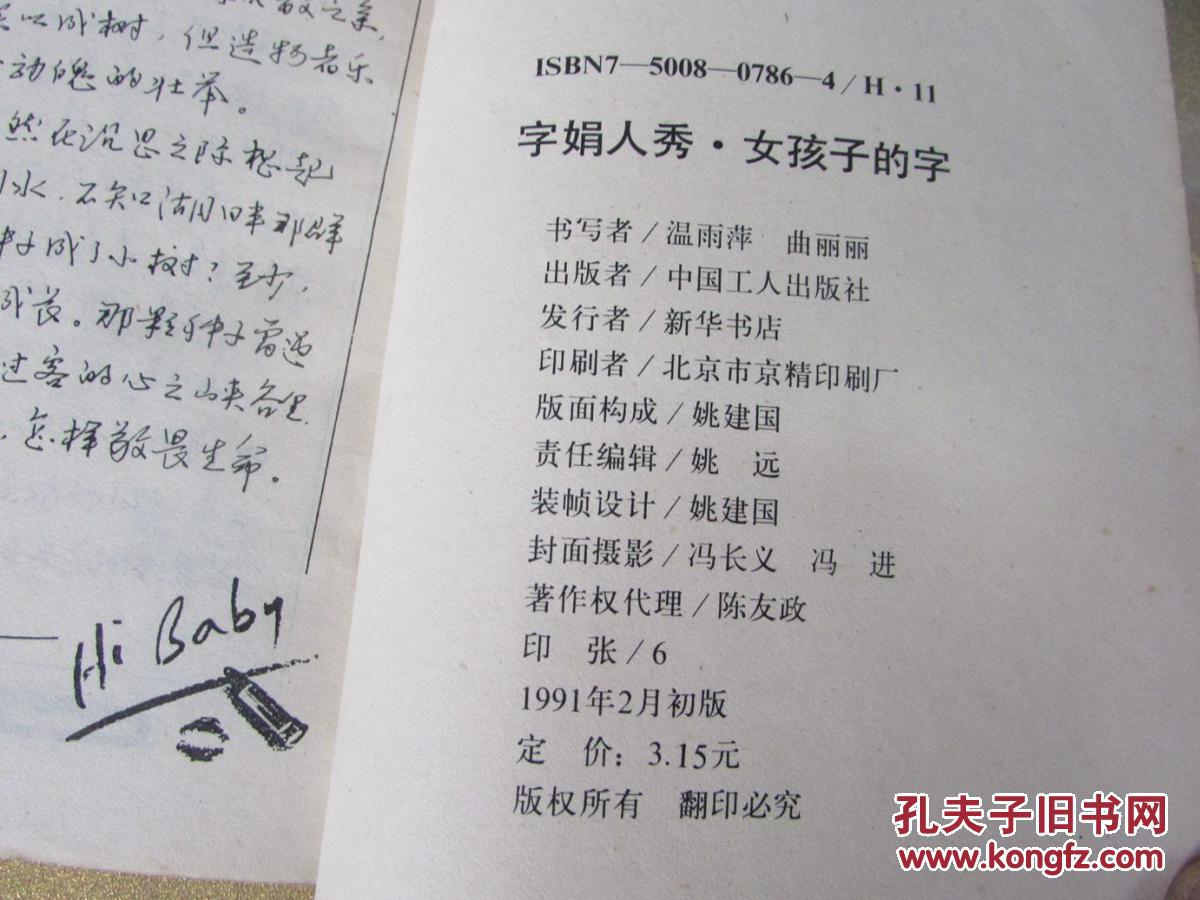 以成树，但造物者乐
动魄的壮举。
然在沉思之际想起
水．不知江湖旧事那群
种子成了小树？至少，
成长。那颗种子曾遇
过客的心之峡谷里
，怎样敬畏生命。
Hi Baby
ISBN7—5008—0786—4/H·11
字娟人秀·女孩子的字
书写者/温雨萍 曲丽丽
出版者/中国工人出版社
发行者/新华书店
印刷者/北京市京精印刷厂
版面构成/姚建国
责任编辑/姚 远
装帧设计/姚建国
封面摄影/冯长义 冯 进
著作权代理/陈友政
印 张/6
1991年2月初版
定 价：3.15元
版权所有 翻印必究
孔夫子旧书网
www.kongfz.com